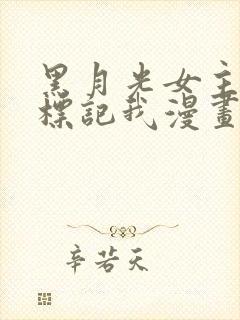 黑月光女主
標記我漫畫
辛若天